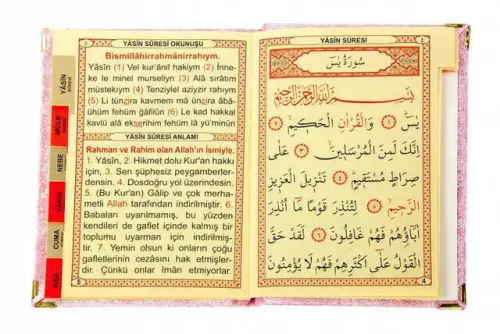 YÂSİN SÛRESİ OKUNUŞU
Bismillâhirrahmânirrahıym.
Yâsîn (1) Vel kur'ânil hakiym (2) İnne-
ke le minel murseliyn (3) Alâ sırâtım
müstekıym (4) Tenziylel aziyzir rahiym
(5) Li tünzira kavmem mâ ünzira âbâ-
ühüm fehüm ğâfilûn (6) Le kad hakkal
kavlü alâ ekserihim fehüm lâ yü'minûn
YÂSİN SÛRESİ ANLAMI
Rahman ve Rahim olan Allah'ın İsmiyle.
1. Yâsîn, 2. Hikmet dolu Kur'an hakkı
için, 3. Sen şüphesiz peygamberler-
densin. 4. Dosdoğru yol üzerindesin.
5. (Bu Kur'an) Gâlip ve çok merha-
metli Allah tarafından indirilmiştir. 6.
Babaları uyarılmamış, bu yüzden
kendileri de gaflet içinde kalmış bir
toplumu uyarman için indirilmiş-
tir. 7. Yemin olsun ki onların çoğu
gafletlerinin cezasını hak etmişler-
dir. Çünkü onlar iman etmiyorlar.
5
YÂSİN
MÜLK
NEBE
VAKIA
CUMA
KISA
YÂSİN SÛRESİ
سُورَةُ يٰسٓ
بِسْمِ اللهِ الرَّحْمٰنِ الرَّحِيمِ
يٰسٓ ﴿١﴾ وَالْقُرْاٰنِ الْحَكِيمِ ﴿٢﴾
اِنَّكَ لَمِنَ الْمُرْسَلِينَ ﴿٣﴾ عَلٰى
صِرَاطٍ مُسْتَقِيمٍ ﴿٤﴾ تَنْزِيلَ الْعَزِيزِ
الرَّحِيمِ ﴿٥﴾ لِتُنْذِرَ قَوْمًا مَٓا اُنْذِرَ
اٰبَٓاؤُهُمْ فَهُمْ غَافِلُونَ ﴿٦﴾ لَقَدْ حَقَّ
الْقَوْلُ عَلٰٓى اَكْثَرِهِمْ فَهُمْ لَا يُؤْمِنُونَ
4